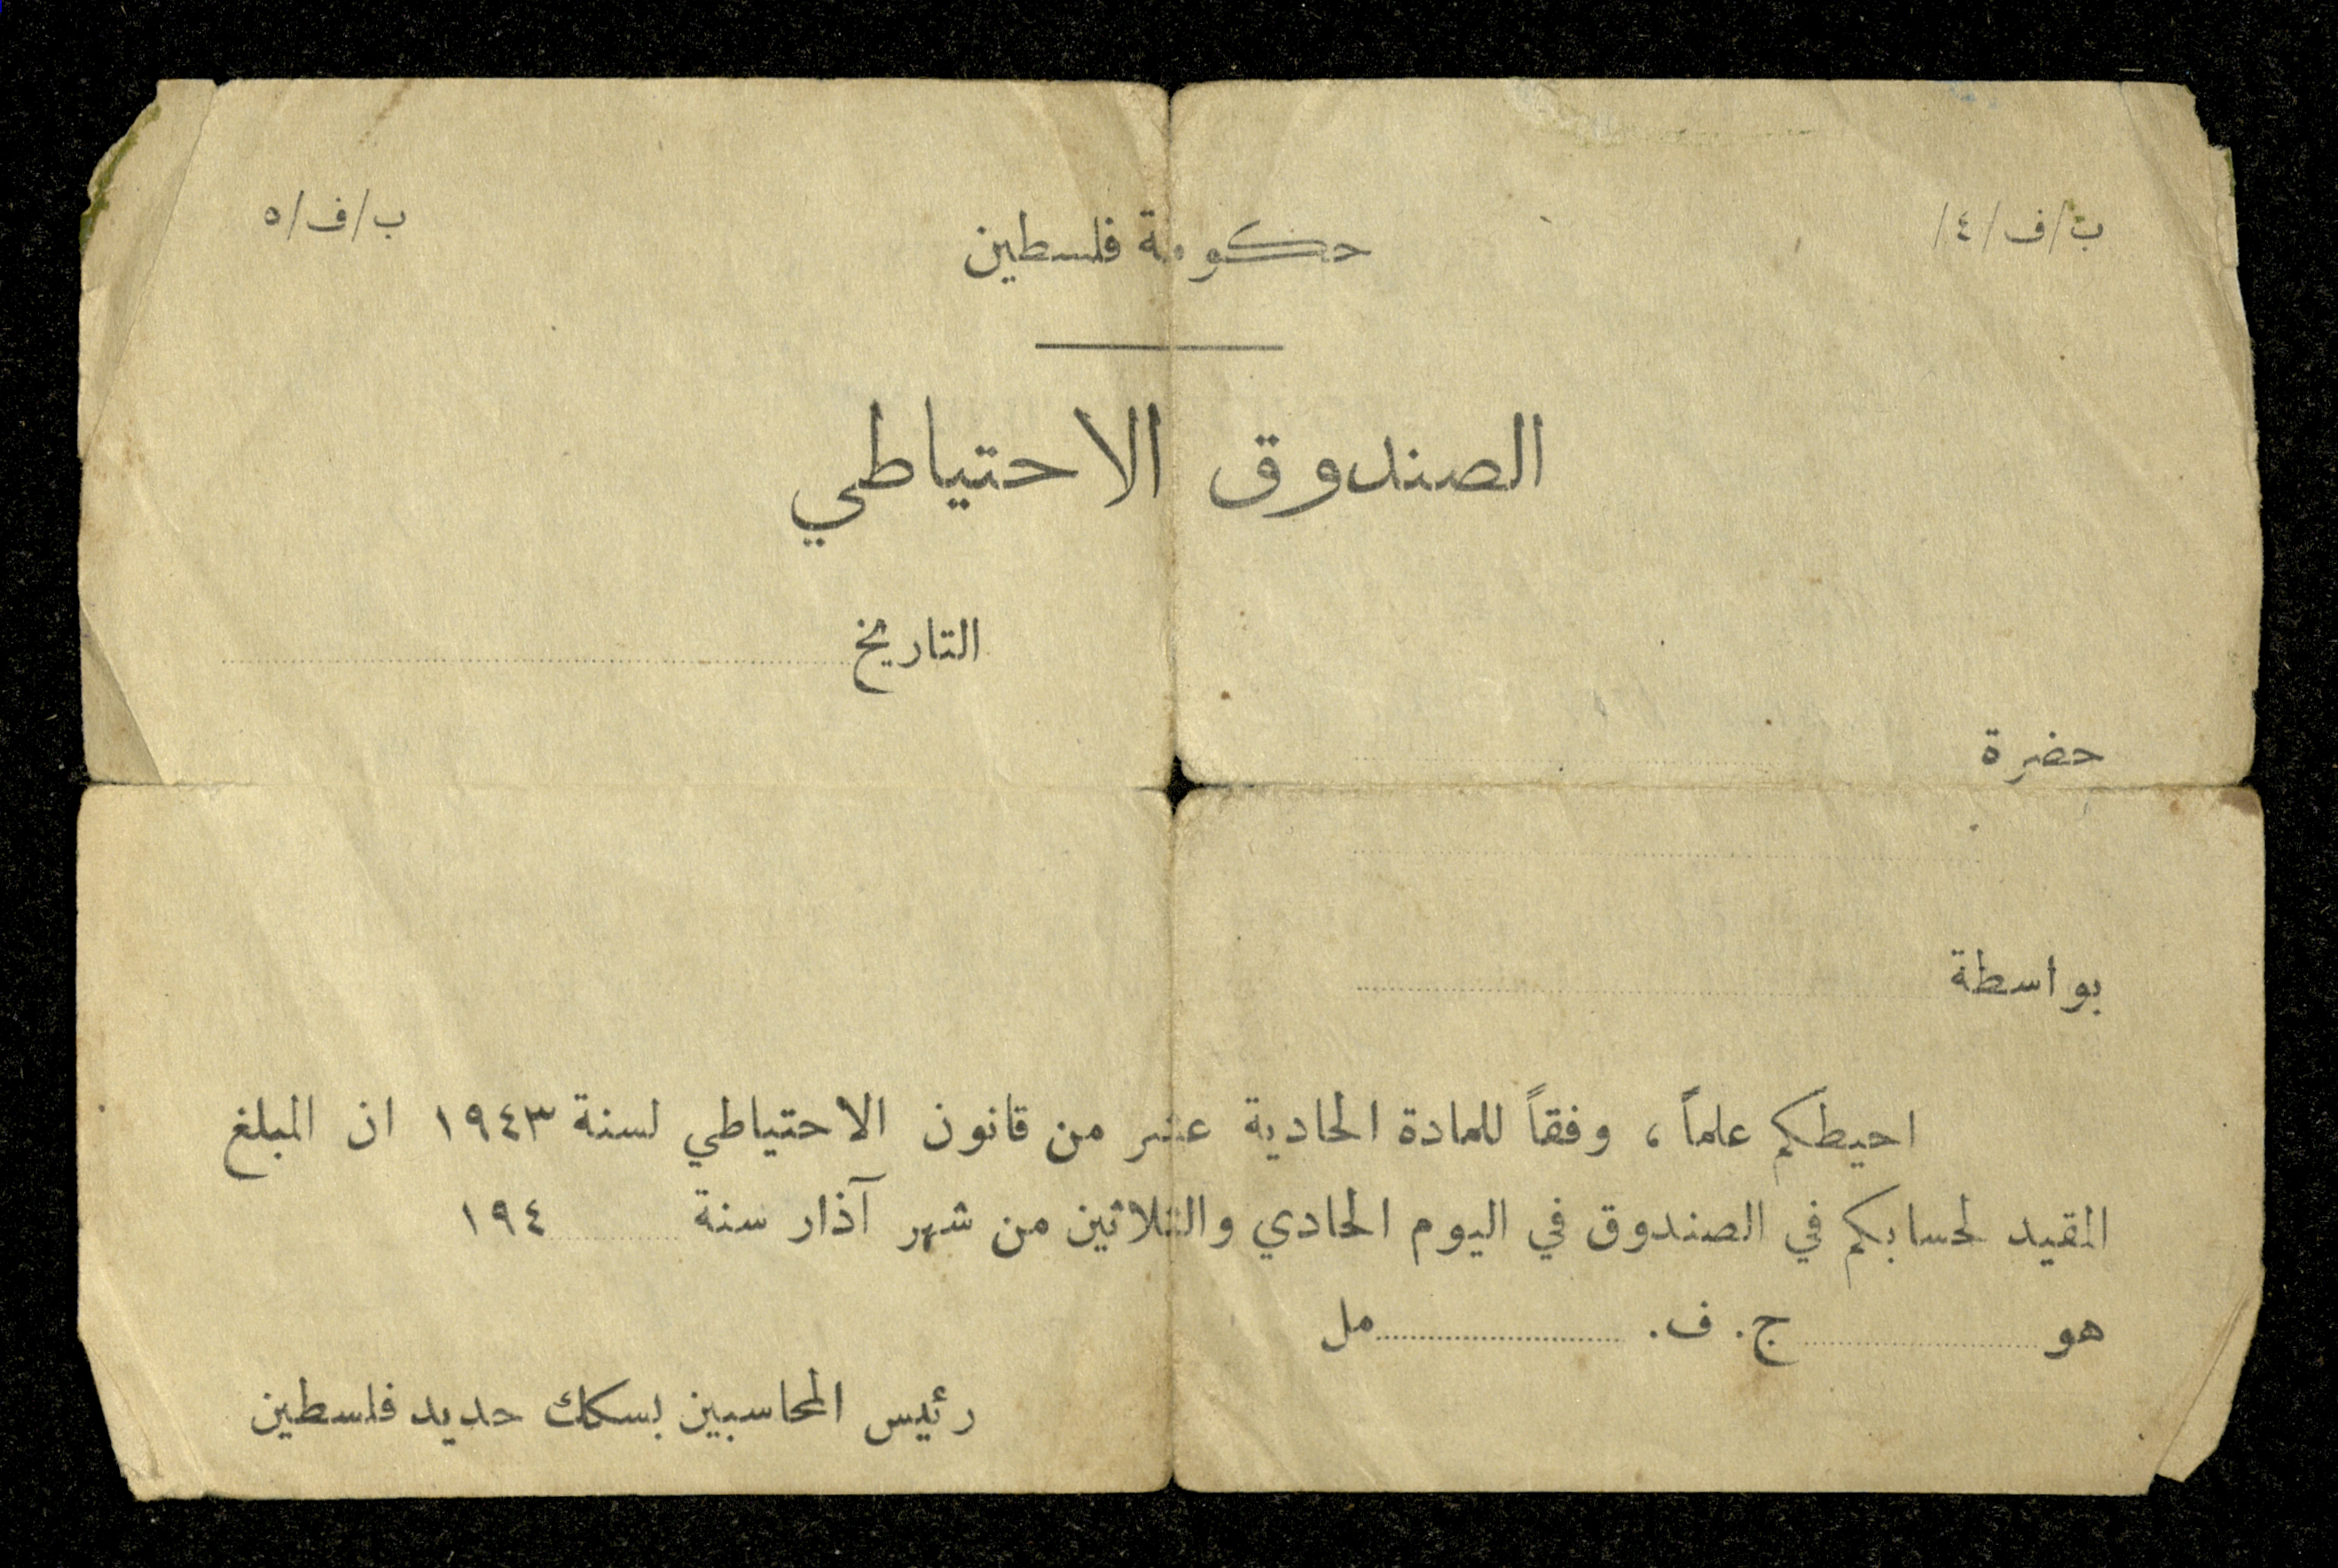 ب/ف/٤/
ب/ف/٥
حكومة فلسطين
الصندوق الاحتياطي
التاريخ
حضرة
بواسطة
احيطكم علماً، وفقاً للمادة الحادية عشر من قانون الاحتياطي لسنة ١٩٤٣ ان المبلغ
المقيد لحسابكم في الصندوق في اليوم الحادي والثلاثين من شهر آذار سنة ........ ١٩٤
هو ........ ج. ف. ........ مل
رئيس المحاسبين بسكك حديد فلسطين